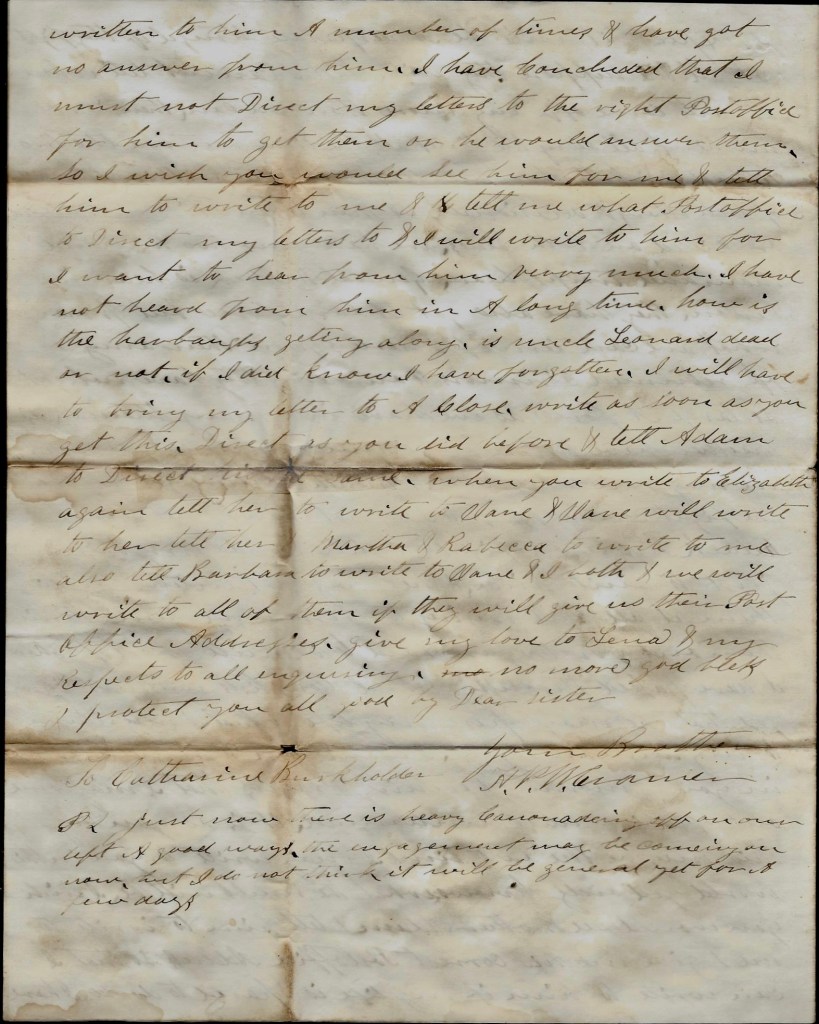 written to him A number of times & have got
no answer from him. I have Concluded that I
must not Direct my letters to the right Postoffice
for him to get them or he would answer them.
So I wish you would See him for me & tell
him to write to me & & tell me what Postoffice
to Direct my letters to & I will write to him for
I want to hear from him verry much. I have
not heard from him in A long time. how is
the harbaughs geting along. is uncle Leonard dead
or not. if I did know I have forgotten. I will have
to bring my letter to A Close. write as soon as you
get this. Direct as you did before & tell Adam
to Direct the same. when you write to Elizabeth
again tell her to write to Jane & Jane will write
to her tell her Martha & Rabecca to write to me
also tell Barbara to write to Jane & I both & we will
write to all of them if they will give us their Post
office Addresses. give my love to Lena & my
respects to all enquiring. no more god bless
& protect you all good by Dear sister
your Brother
To Catharine Burkholder
A. P. W. Cramer
P.S. just now there is heavy Canonadeing off on our
left A good ways. the engagement may be comeing on
now. but I do not think it will be general yet for A
few days